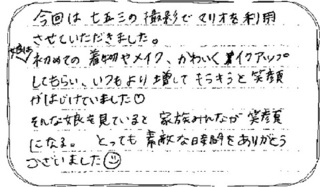 今回は七五三の撮影でマリオを利用
させていただきました。
初めての着物やメイク、かわいくメイクアップ
してもらい、いつもより増してキラキラと笑顔
がはじけていました♡
そんな娘を見ていると家族みんなが笑顔
になる。とっても素敵な時間をありがとう
ございました☺